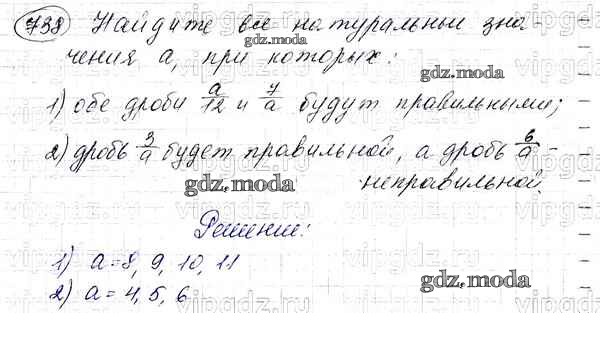 738 Найдите все натуральные зна-
чения a, при которых:
1) обе дроби a/12 и 7/a будут правильными;
2) дробь 3/a будет правильной, а дробь 6/a -
неправильной.
Решение:
1) a = 8, 9, 10, 11
2) a = 4, 5, 6
gdz.moda
gdz.moda
gdz.moda
gdz.moda
gdz.moda
gdz.moda